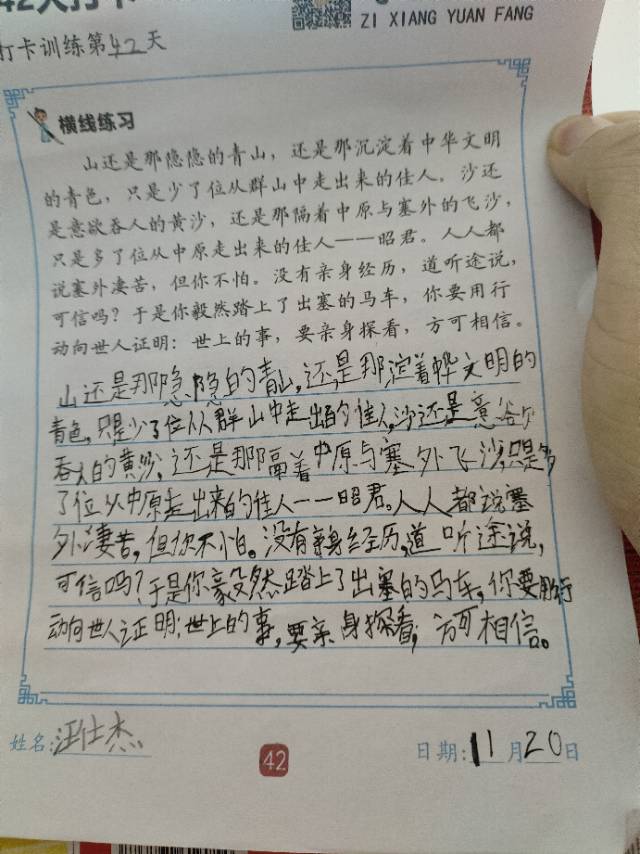 42天打卡
ZI XIANG YUAN FANG
打卡训练第42天
横线练习
山还是那隐隐的青山，还是那沉淀着中华文明
的青色，只是少了位从群山中走出来的佳人。沙还
是意欲吞人的黄沙，还是那隔着中原与塞外的飞沙，
只是多了位从中原走出来的佳人——昭君。人人都
说塞外凄苦，但你不怕。没有亲身经历，道听途说，
可信吗？于是你毅然踏上了出塞的马车，你要用行
动向世人证明：世上的事，要亲身探看，方可相信。
山还是那隐隐的青山，还是那淀着中华文明的
青色，只是少了位从群山中走出的佳人，沙还是意欲
吞人的黄沙，还是那隔着中原与塞外飞沙，只是多
了位从中原走出来的佳人——昭君。人人都说塞
外凄苦，但你不怕。没有亲身经历，道听途说，
可信吗？于是你毅然踏上了出塞的马车，你要用行
动向世人证明：世上的事，要亲身探看，方可相信。
姓名：汪仕杰
42
日期：11月20日